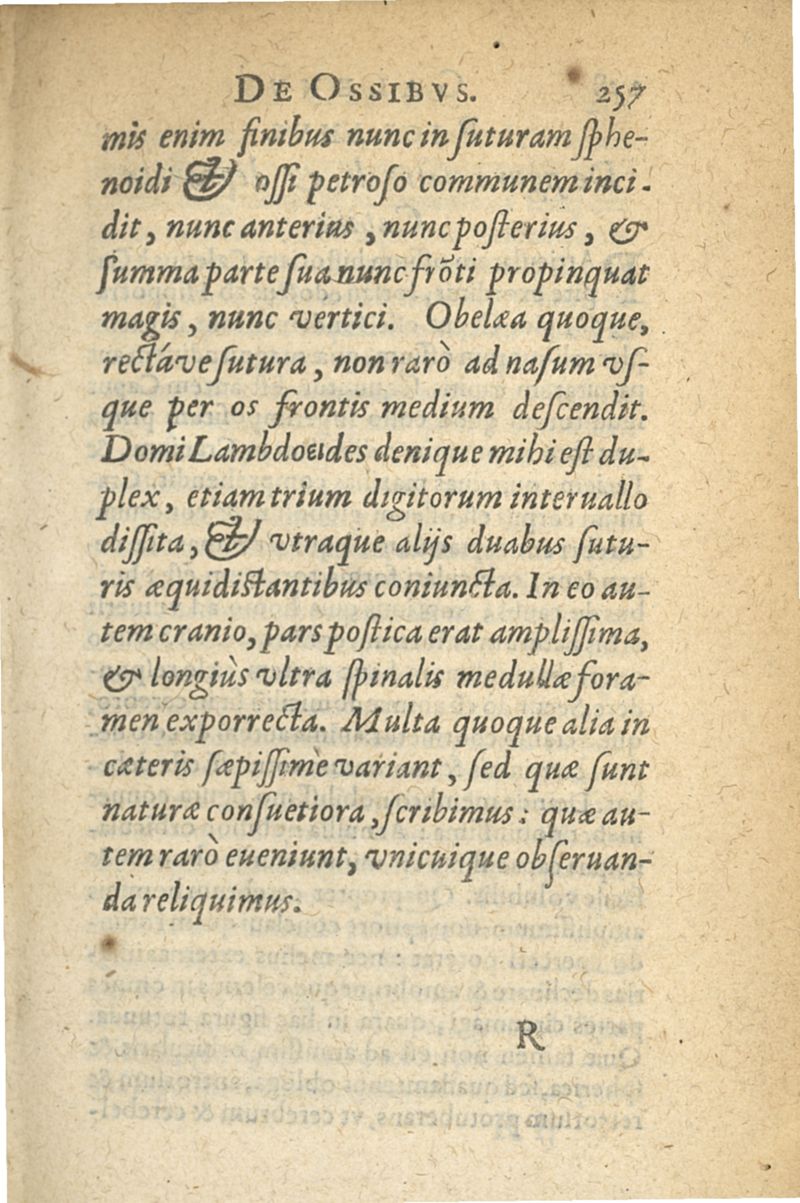 DE OSSIBVS. 257
mis enim finibus nunc in ſuturam ſphe-
noidi & oſſi petroſo communem inci-
dit, nunc anterius, nunc poſterius, &
ſumma parte ſua nunc frōti propinquat
magis, nunc vertici. Obelæa quoque,
rectáve ſutura, non rarò ad naſum vſ-
que per os frontis medium deſcendit.
Domi Lambdoeides denique mihi eſt du-
plex, etiam trium digitorum interuallo
diſſita, & vtraque alijs duabus ſutu-
ris æquidiſtantibus coniuncta. In eo au-
tem cranio, pars poſtica erat ampliſſima,
& longiùs vltra ſpinalis medullæ fora-
men exporrecta. Multa quoque alia in
cæteris ſæpiſſimè variant, ſed quæ ſunt
naturæ conſuetiora, ſcribimus: quæ au-
tem rarò eueniunt, vnicuique obſeruan-
da reliquimus.
R